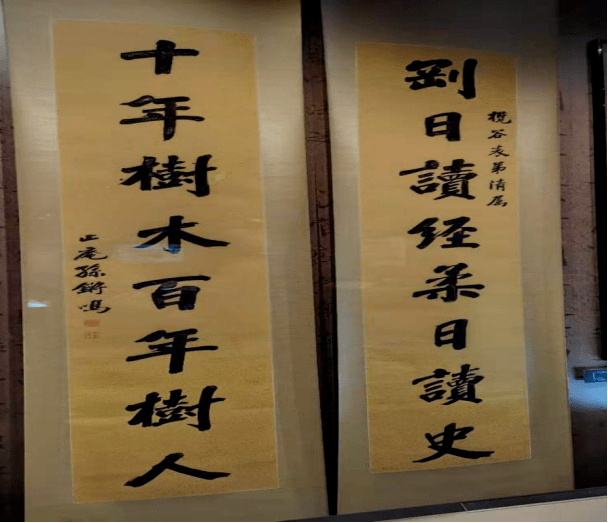 剛日讀經柔日讀史
谷表弟清属
十年樹木百年樹人
止庵孫鏘鳴